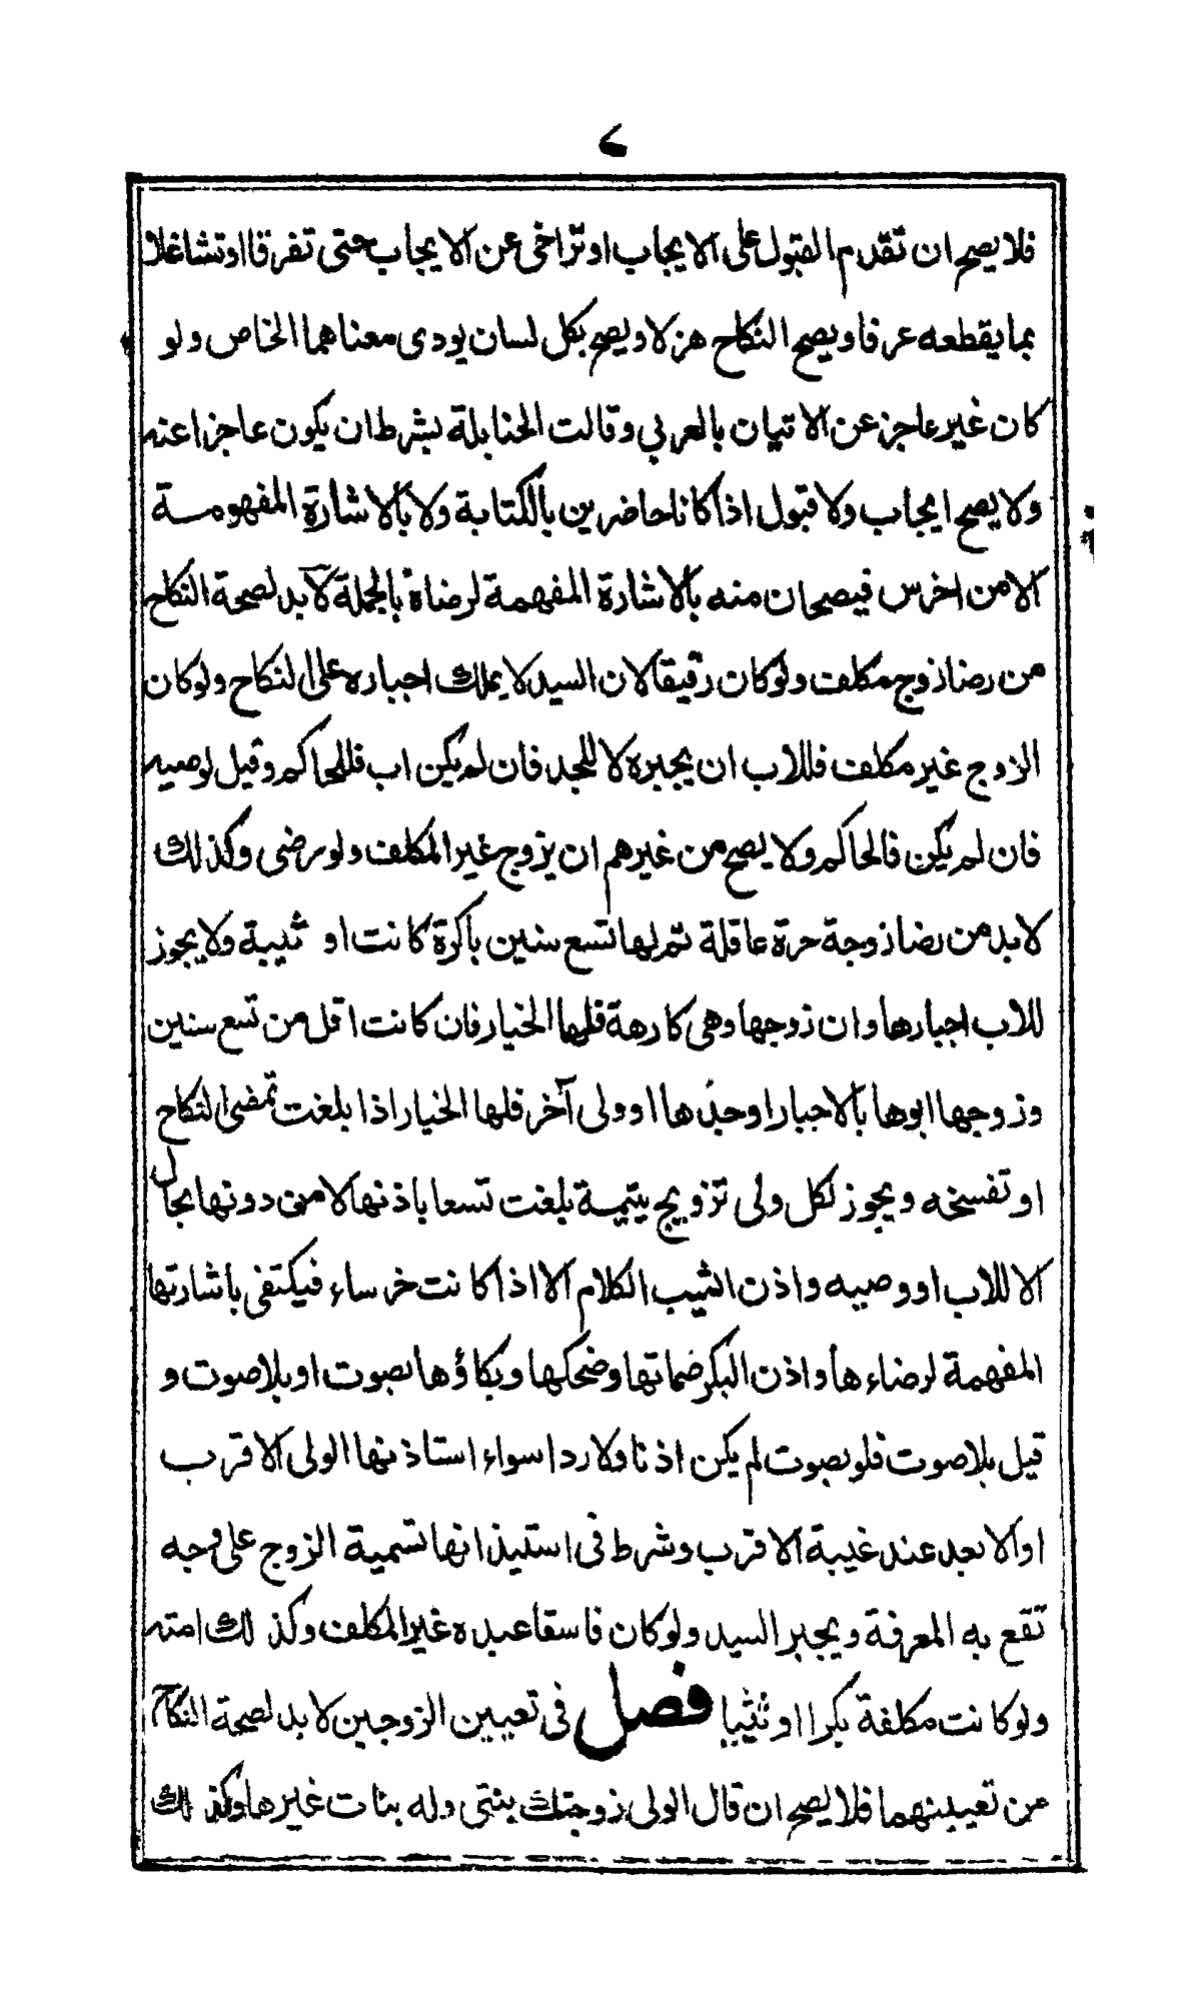 فلا يصح ان تقدم القبول على الايجاب او تراخى عن الايجاب حتى تفرقا او تشاغلا
بما يقطعه عرفا ويصح النكاح هزلا ويصح بكل لسان يودى معناهما الخاص ولو
كان غير عاجز عن الاتيان بالعربي وقالت الحنابلة بشرط ان يكون عاجزا عنه
ولا يصح ايجاب ولا قبول اذا كانا حاضرين بالكتابة ولا بالاشارة المفهومة
الا من اخرس فيصحان منه بالاشارة المفهمة لرضاه بالجملة لابد لصحة النكاح
من رضا زوج مكلف ولو كان رقيقا لان السيد لا يملك اجباره على النكاح ولو كان
الزوج غير مكلف فللاب ان يجبره لا للجد فان لم يكن اب فللحاكم وقيل لوصيه
فان لم يكن فالحاكم ولا يصح من غيرهم ان يزوج غير المكلف ولو رضى وكذلك
لابد من رضا زوجة حرة عاقلة تم لها تسع سنين باكرة كانت او ثيبة ولا يجوز
للاب اجبارها وان زوجها وهى كارهة فلها الخيار فان كانت اقل من تسع سنين
وزوجها ابوها بالاجبار او جدها او ولى آخر فلها الخيار اذا بلغت تمضى النكاح
او تفسخه ويجوز لكل ولى تزويج يتيمة بلغت تسعا باذنها لا من دونها بحال
الا للاب او وصيه واذن الثيب الكلام الا اذا كانت خرساء فيكتفى باشارتها
المفهمة لرضاءها واذن البكر صماتها وضحكها وبكاؤها بصوت او بلا صوت و
قيل بلا صوت فلو بصوت لم يكن اذنا ولا ردا سواء استاذنها الولى الاقرب
او الابعد عند غيبة الاقرب وشرط فى استيذانها تسمية الزوج على وجه
تقع به المعرفة ويجبر السيد ولو كان فاسقا عبده غير المكلف وكذلك امته
ولو كانت مكلفة بكرا او ثيبا فصل فى تعيين الزوجين لابد لصحة النكاح
من تعيينهما فلا يصح ان قال الولى زوجتك بنتى وله بنات غيرها وكذلك